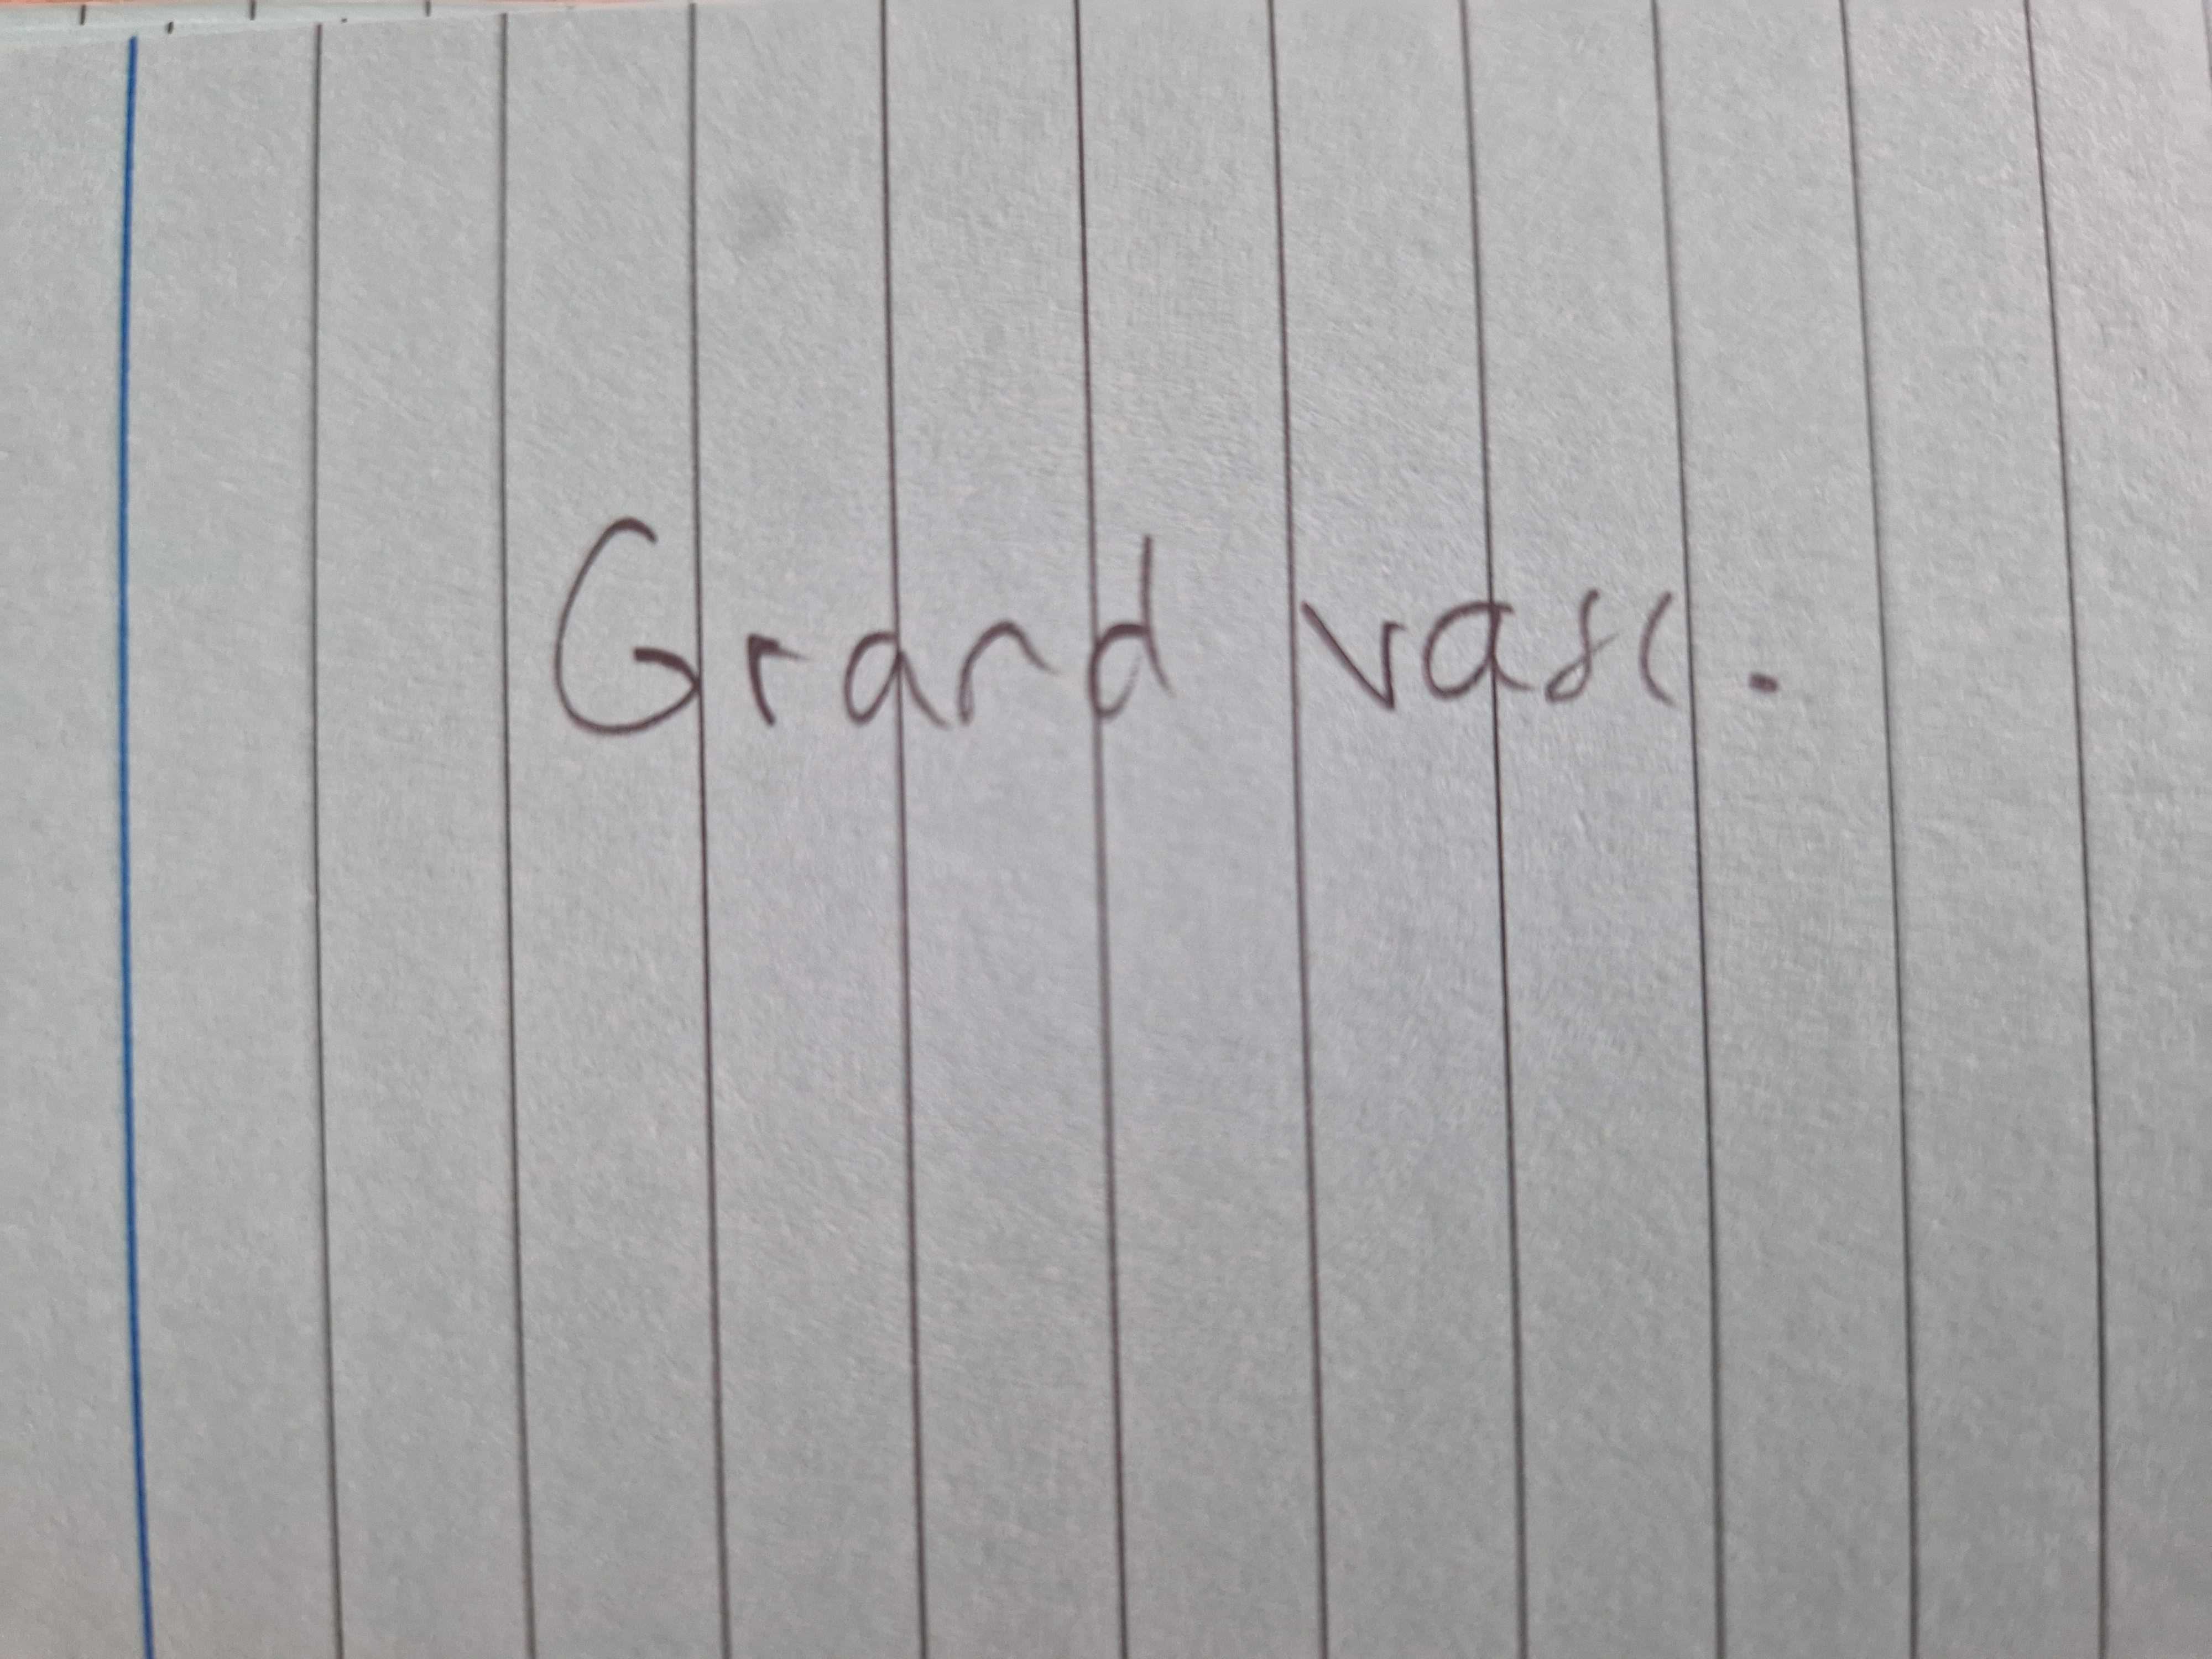 Grand vasc.